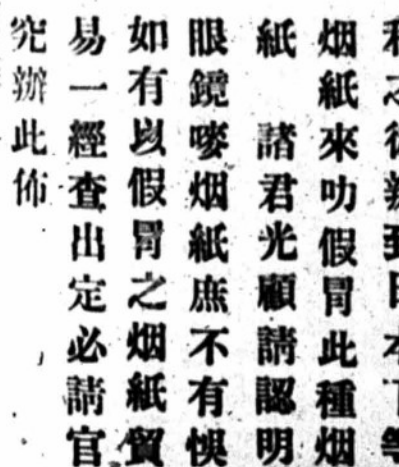 利之徒辦到日本下等
烟紙來叻假冒此種烟
紙　諸君光顧請認明
眼鏡嘜烟紙庶不有悞
如有以假冒之烟紙貿
易一經查出定必請官
究辦此佈